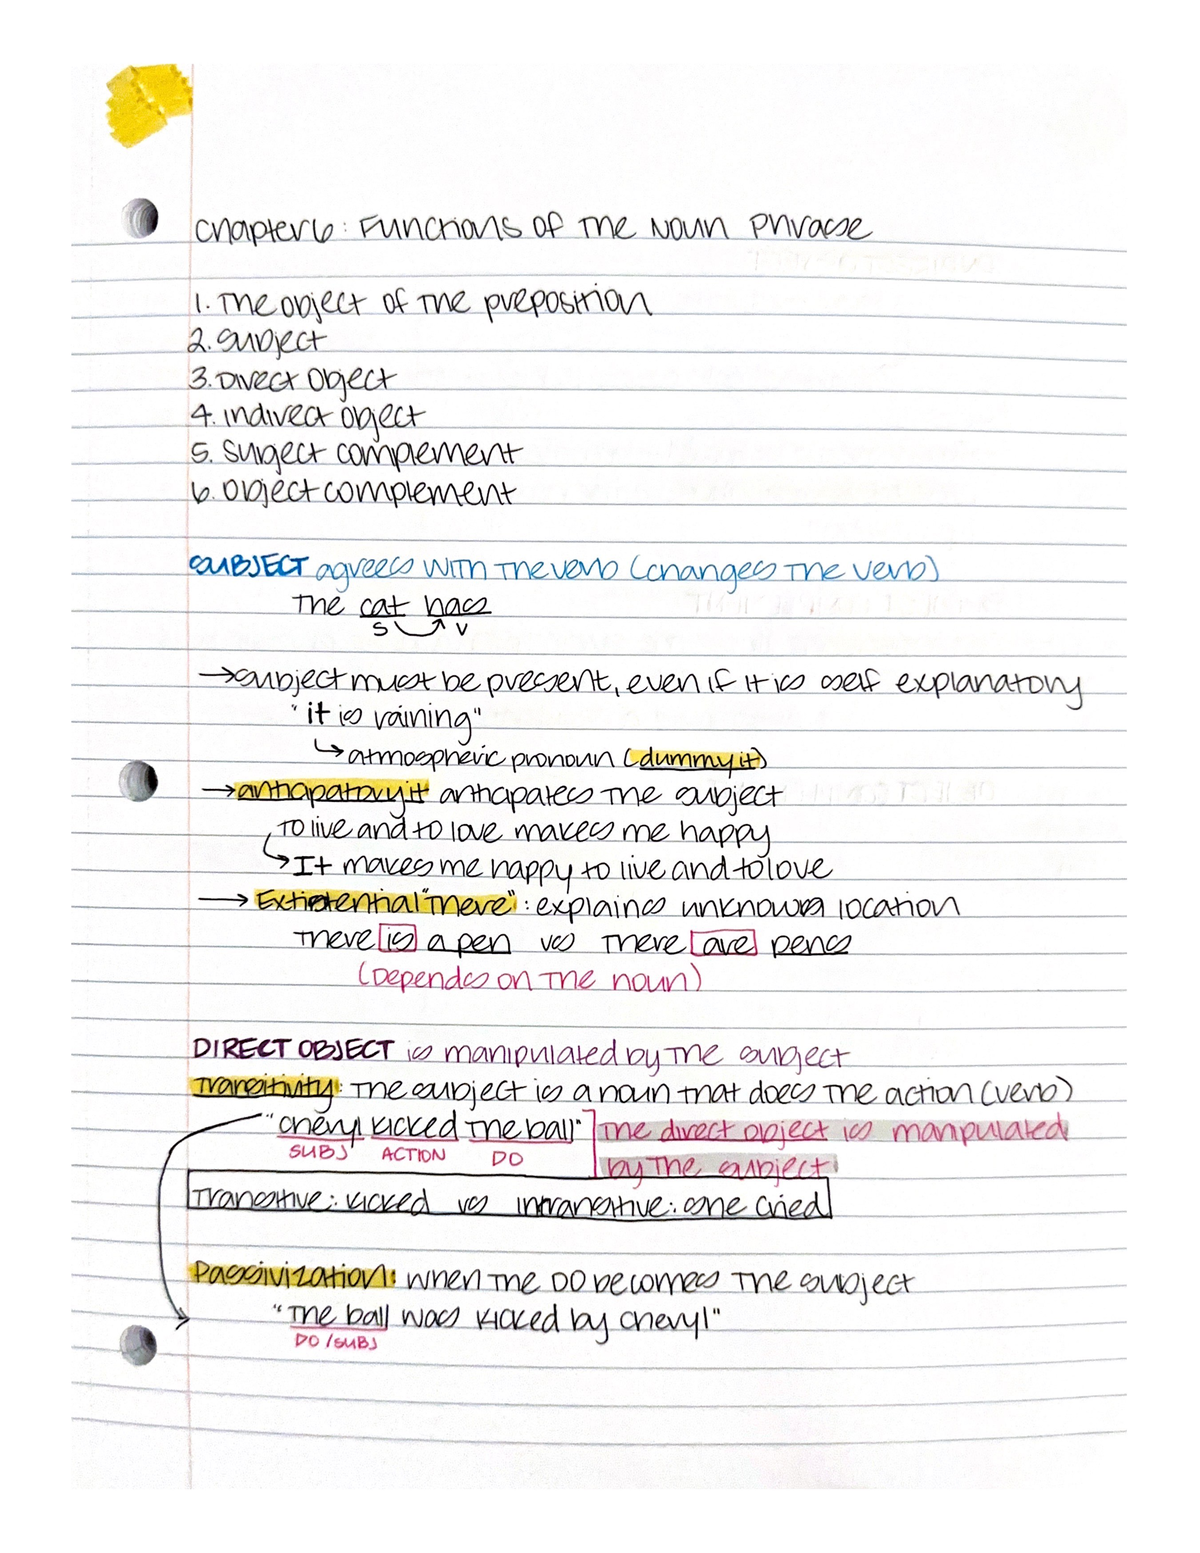 Chapter 6: Functions of the Noun Phrase
1. The object of the preposition
2. Subject
3. Direct Object
4. Indirect object
5. Subject complement
6. Object complement
SUBJECT agrees with the verb (changes the verb)
The cat has
S V
→ subject must be present, even if it is self explanatory
"it is raining"
↳ atmospheric pronoun (dummy it)
→ anticipatory it anticipates the subject
To live and to love makes me happy
↳ It makes me happy to live and to love
→ Extistential "There": explains unknown location
There is a pen vs There are pens
(Depends on the noun)
DIRECT OBJECT is manipulated by the subject
Transitivity: The subject is a noun that does the action (verb)
"Cheryl kicked the ball" The direct object is manipulated
SUBJ ACTION DO by the subject
Transitive: kicked vs intransitive: she cried
Passivization: when the DO becomes the subject
"The ball was kicked by Cheryl"
DO/SUBJ